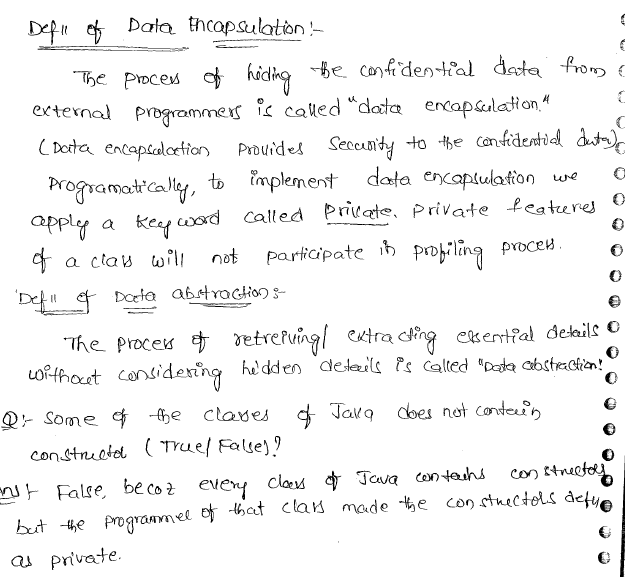 Defn of Data Encapsulation:-
The process of hiding the confidential data from
external programmers is called "data encapsulation."
(Data encapsulation provides security to the confidential data)
Programatically, to implement data encapsulation we
apply a key word called private. Private features
of a class will not participate in profiling process.
Defn of Data abstraction:-
The process of retreiving/ extracting essential details
without considering hidden details is called "Data abstraction".
Q:- Some of the classes of Java does not contain
constructor (True/False)?
Ans:- False, becoz every class of Java contains constructors
but the programmer of that class made the constructors
as private.